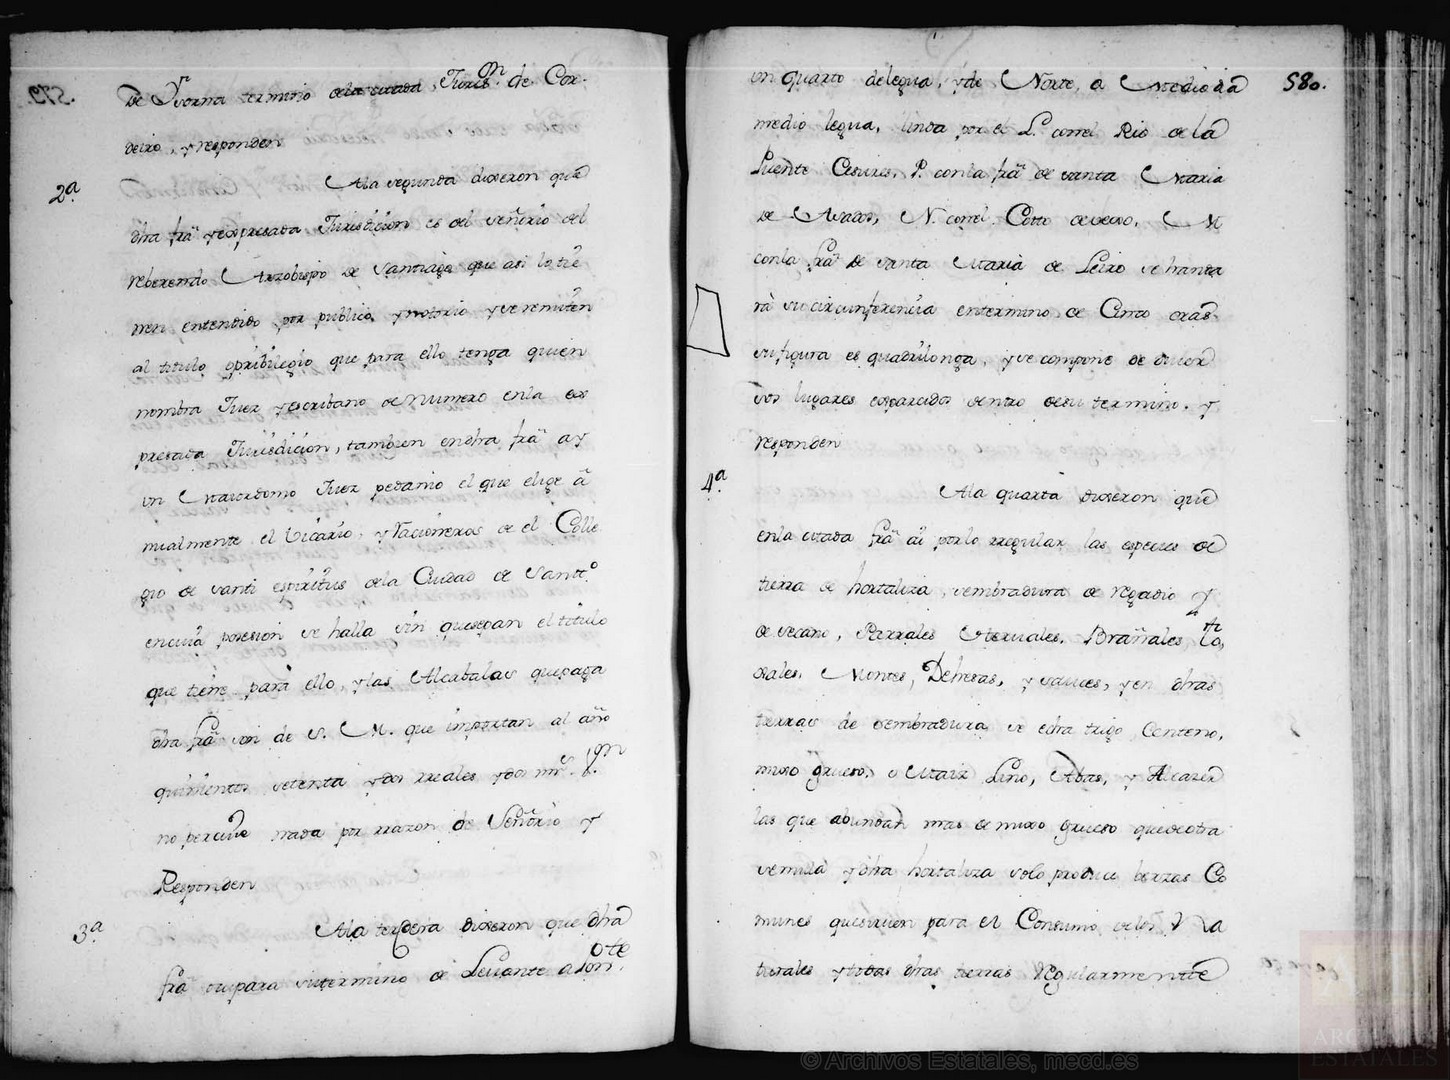 579.
De Yvorna termino dela citada Juris.on de Cor-
deiro, y responden
2.a
Ala segunda dixeron que
dha fra y expresada Jurisdicion es del señorio del
reberendo Arzobispo de Santiago que asi lo tie
nen entendido por publico, y notorio y se remiten
al titulo o pribilegio que para ello tenga quien
nombra Juez y escribano de Numero enla ex
presada Jurisdicion, tambien en dha fra ay
un Maiordomo Juez pedanio el que elige a
nualmente el Vicario, y Racioneros de el Colle
gio de santi espiritus dela Ciudad de Santt.o
en cuia posesion se halla sin que sepan el titulo
que tiene para ello, y las Alcabalas que paga
dha fra son de S. M. que importan al año
quinientos setenta y dos rreales y dos mrs. v.on
no percive nada por rrazon de Señorio y
Responden
3.a
Ala tercera dixeron que dha
fra ocupara su termino de Levante a Pon.te
580.
un quarto de legua, y de Norte, a Medio dia
medio legua, linda por el L. con el Rio de la
Puente Cesures, P. con la fra de santa Maria
de Asados, N. con el Coto de seixo, M
con la fra de Santa Maria de Leiro se handa
rà su circunferencia en termino de Cinco oras
su figura es quadrilonga, y se compone de diver
sos lugares esparcidos dentro desu termino. y
responden
4.a
Ala quarta dixeron que
enla citada fra ai por lo rregular las especies de
tierra de hortaliza, sembradura de regadio y
de secano, Parrales Herviales, Brañales, To,
xales, Montes, Dehesas, y sauces, y en dhas
tierras de sembradura se echa trigo, Centeno,
mixo grueso, o Maiz Lino, Abas, y Alcazer
las que abundan mas de mixo grueso que de otra
semilla y dha hortaliza solo produce berzas Co
munes que sirven para el Consumo delos Na
turales y todas dhas tierras Regularmente
© Archivos Estatales, mecd.es
ARCHIVOS
ESTATALES